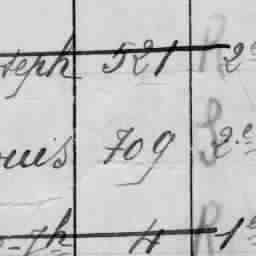 seph 521 R 2e
ouis 709 S 2.e
h 4 R 1e